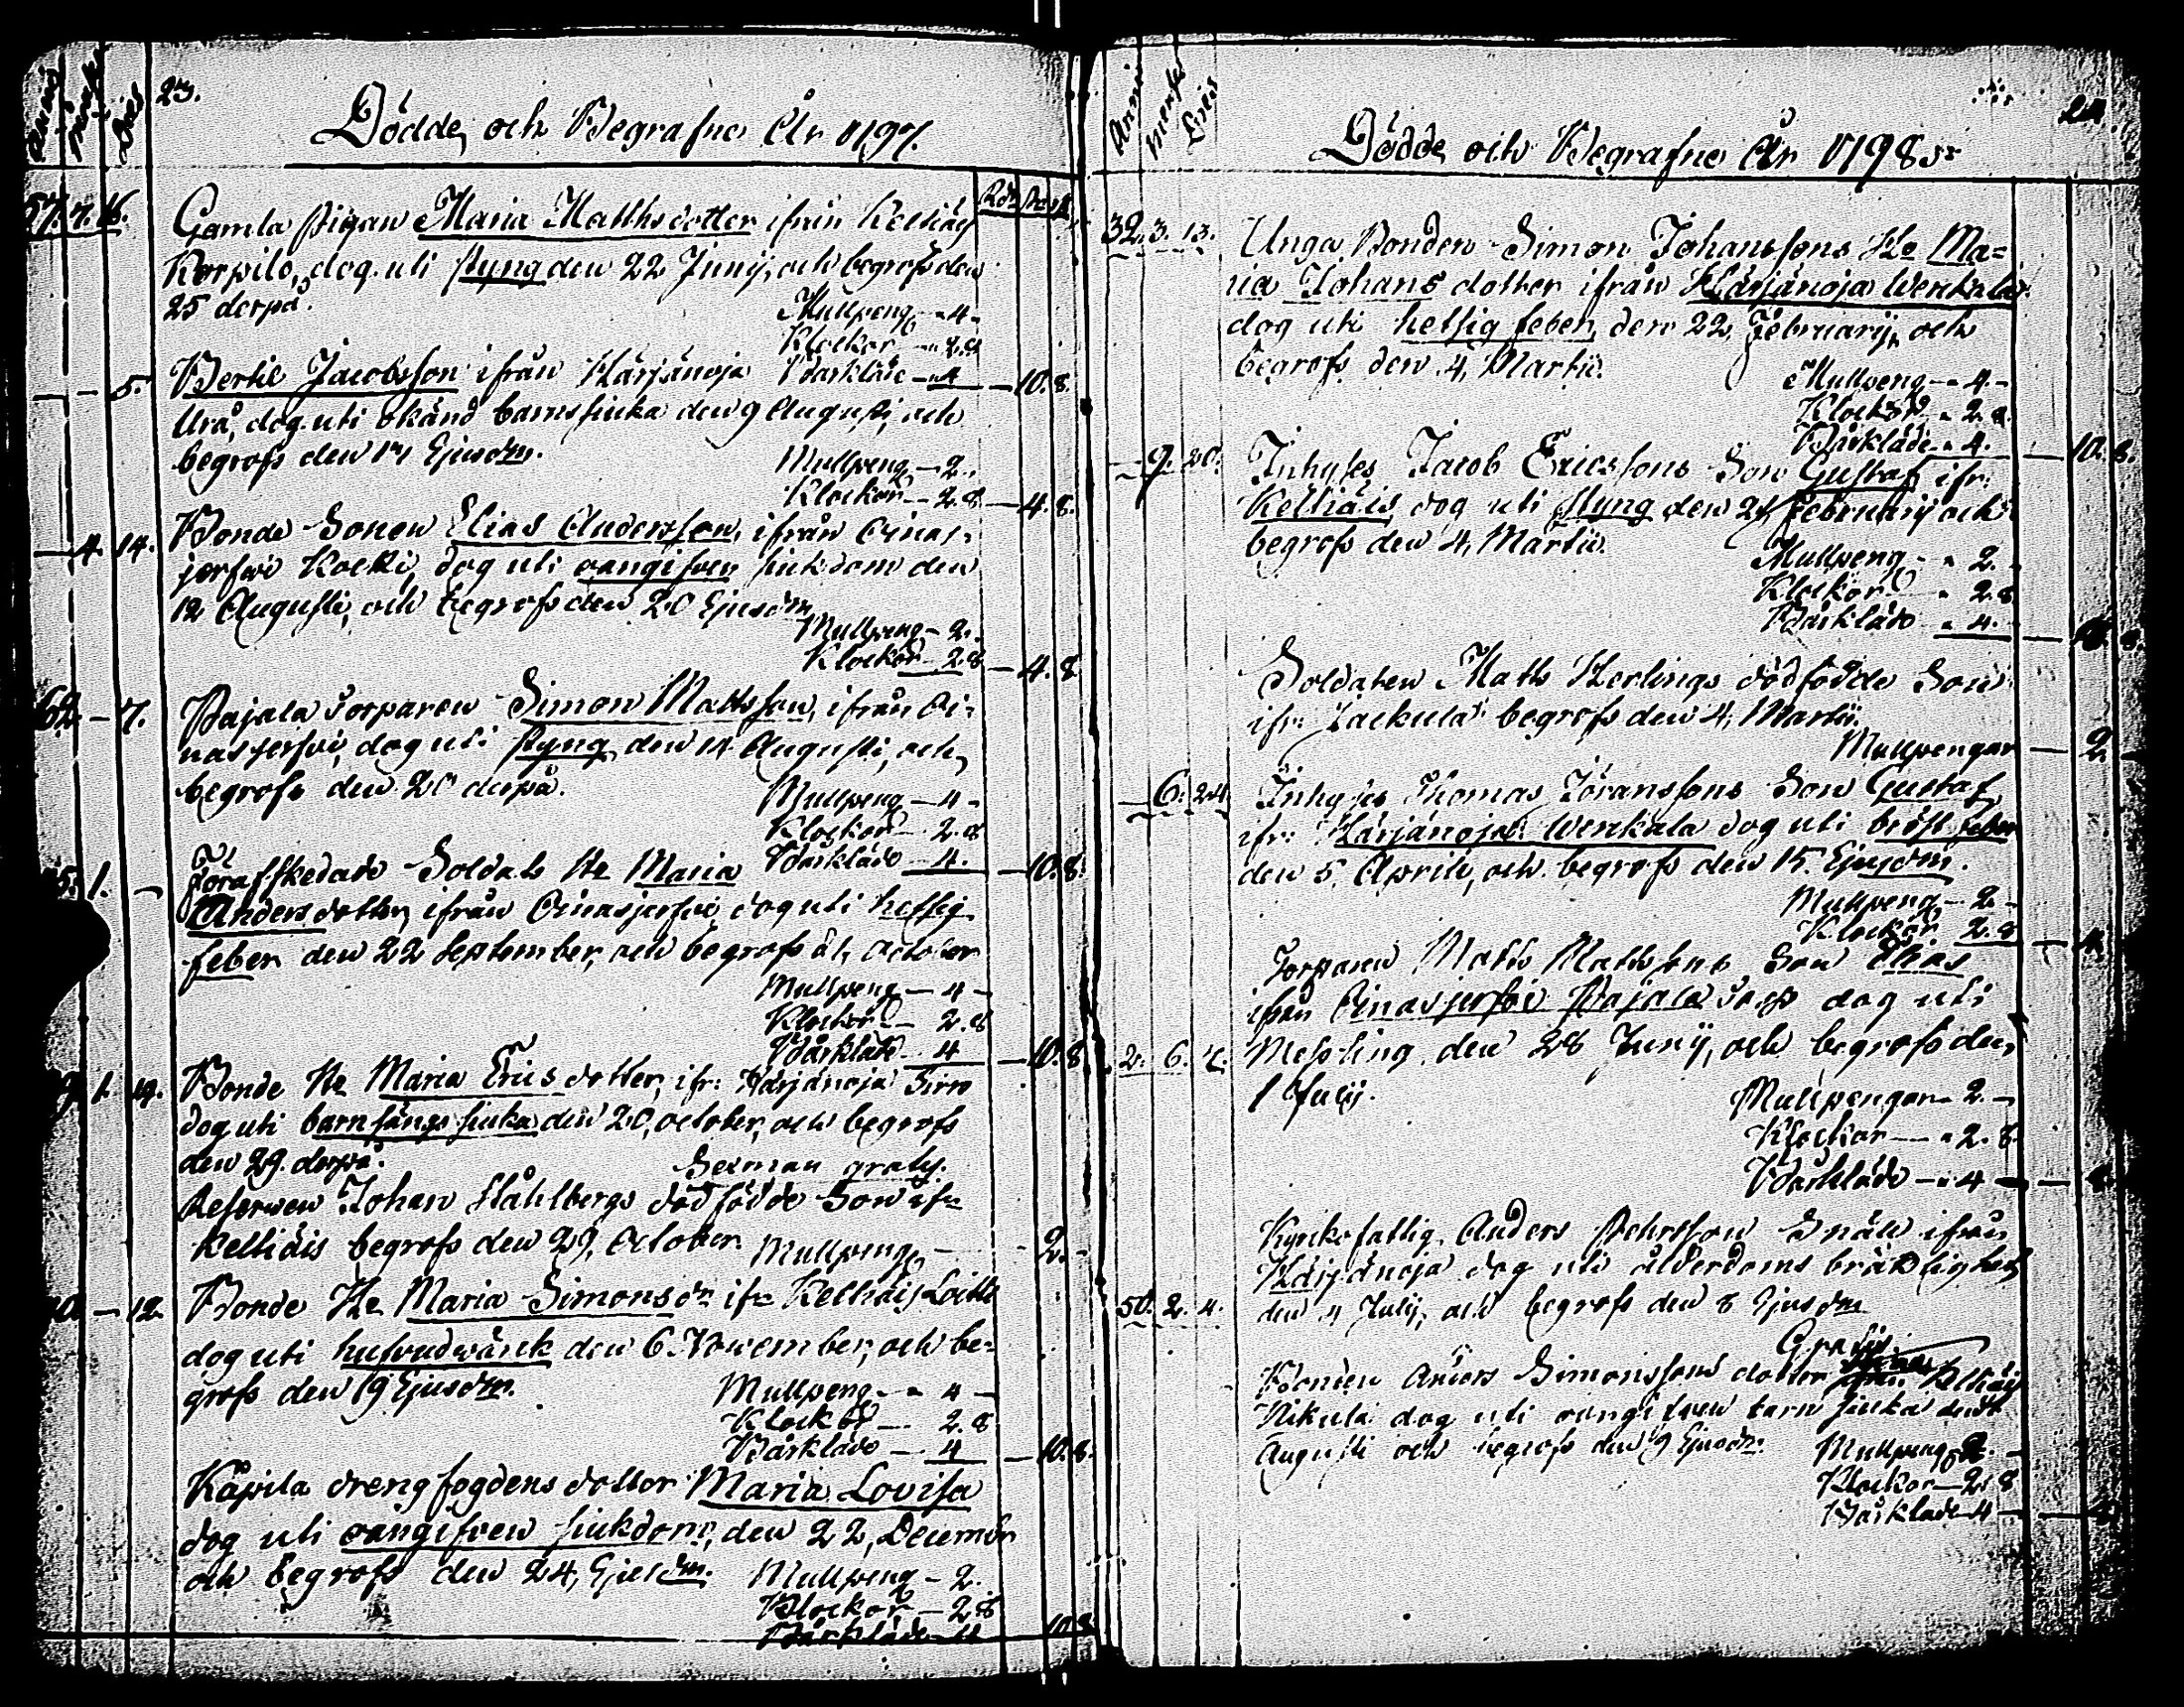 23.
Dödde och Begrafne År 1797.
Rdr
57. 7. 16.
Gamla Pigan Maria Matthsdotter ifrån Keltiäis
Korpilo, dog uti styng den 22 Junij, och begrofs den
25 derpå.
Mullpeng - 4 -
Klockor - 2.8
Bårkläde - 4 - 10. 8.
- - 5.
Bertil Jacobsson ifrån Härjänoja
Urå, dog uti okänd barnsiuka den 9 Augusti, och
begrofs den 14 Ejusdm.
Mullpeng - 2.
Klockor - 2.8 - 4. 8.
- 4. 14.
Bonde Sonen Elias Andersson, ifrån Oinas-
jerfwi Kocki, dog uti oangifven siukdom den
12 Augusti, och begrofs den 20 Ejusdm
Mullpeng - 2.
Klockor - 2.8 - 4. 8
62. - 7.
Pajala Torparen Simon Mattsson, ifrån Oi-
nasjerfvi, dog uti styng den 14 Augusti, och
begrofs den 20 derpå.
Mullpeng - 4 -
Klockor - 2.8
Bårkläde - 4. - 10. 8.
5. 1. -
Förafskedade Soldats H. Maria
Andersdotter, ifrån Oinasjerfvi, dog uti hetsig
feber den 22 September, och begrofs d. 1, October
Mullpeng - 4 -
Klockor - 2.8
Bårkläde - 4 - 10. 8
1. 14.
Bonde H. Maria Ericsdotter, ifr: Härjänoja
dog uti barnsängs siuka den 20, october, och begrofs
den 29. derpå.
gratis.
Reserven Johan Ståhlbergs dödfödde Son ifr
Keltiäis begrofs den 29, October
Mullpeng - 2. -
- 12
Bonde H. Maria Simonsdr ifr Keltiäis
dog uti hufvudwärck den 6 November, och be-
grofs den 19 Ejusdm.
Mullpeng - 4 -
Klockor - 2.8
Bårkläde - 4 - 10. 8.
Kåpila drengfogdens dotter Maria Lovisa
dog uti oangifven siukdom, den 22, Decembr
och begrofs den 24, Ejusdm.
Mullpeng - 2.
Klockor - 2.8
Bårkläde - 4 10.8
24.
Anni
Dies
Dödde och Begrafne År 1798.
32. 3. 13.
Unga Bonden Simon Johanssons H. Ma=
ria Johans dotter ifrån Härjänoja Wenkala
dog uti hetsig feber, den 22, Februarij, och
begrofs den 4, Martii.
Mullpeng - 4. -
Klockor - 2.8.
Bårkläde - 4. - 10. 8.
- 9. 20.
Inhyses Jacob Ericssons Son Gustaf ifr:
Keltiäis, dog uti styng den 21, Februarij och
begrofs den 4, Martii.
Mullpeng - 2.
Klockor - 2.8
Bårkläde - 4. -
Soldaten Matts Herlings dödfödde Son
ifr: begrofs den 4, Martii.
Mullpengar - 2 -
- 6. 24
Inhyses Thomas Jöranssons Son Gustaf
ifr: Härjänoja Wenkala dog uti bröst feber
den 5. Aprilis, och begrofs den 15. Ejusdm.
Mullpeng - 2 -
Klockor 2.8 -
Torparen Matts Mattssons Son Elias
ifrån Oinasjerfvi Pajala Torp dog uti
2. 6.
Messling, den 28 Junij, och begrofs den
1 Julij.
Mullpengar - 2. -
Klockor - 2. 8.
Bårkläde - 4 -
Kyrkofattig Anders Pehrsson Snäll ifrån
Härjänoja dog uti ålderdoms bräcklighet
50. 2. 4.
den 4 Julij, och begrofs den 8 Ejusdm
Gratis.
Bonden Anders Simonssons dotter Keltiäis
Nikula dog uti oangifven barn siuka den
Augusti och begrofs den 9 Ejusdm.
Mullpeng - 2. -
Klockor - 2.8
Bårkläde 4 -